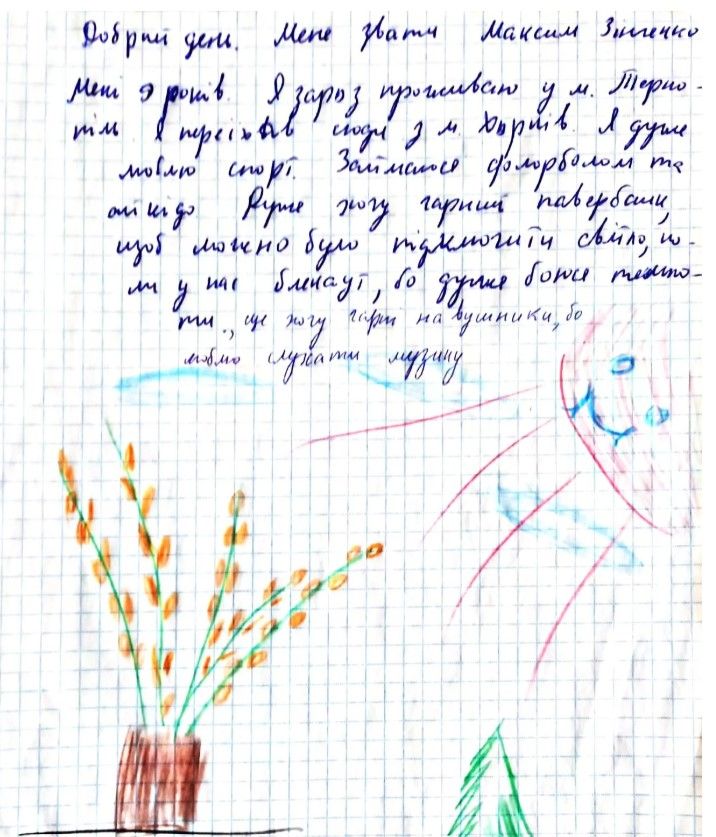 Добрий день. Мене звати Максим Зінченко
Мені 9 років. Я зараз проживаю у м. Терно-
піль Я переїхав сюди з м. Харків. Я дуже
люблю спорт. Займаюсе флорболом та
айкідо Дуже хочу гарний павербанк,
щоб можно було підключити світло, ко-
ли у нас блекаут, бо дуже боюсе темно-
ти., ще хочу гарні навушники, бо
люблю слухати музику